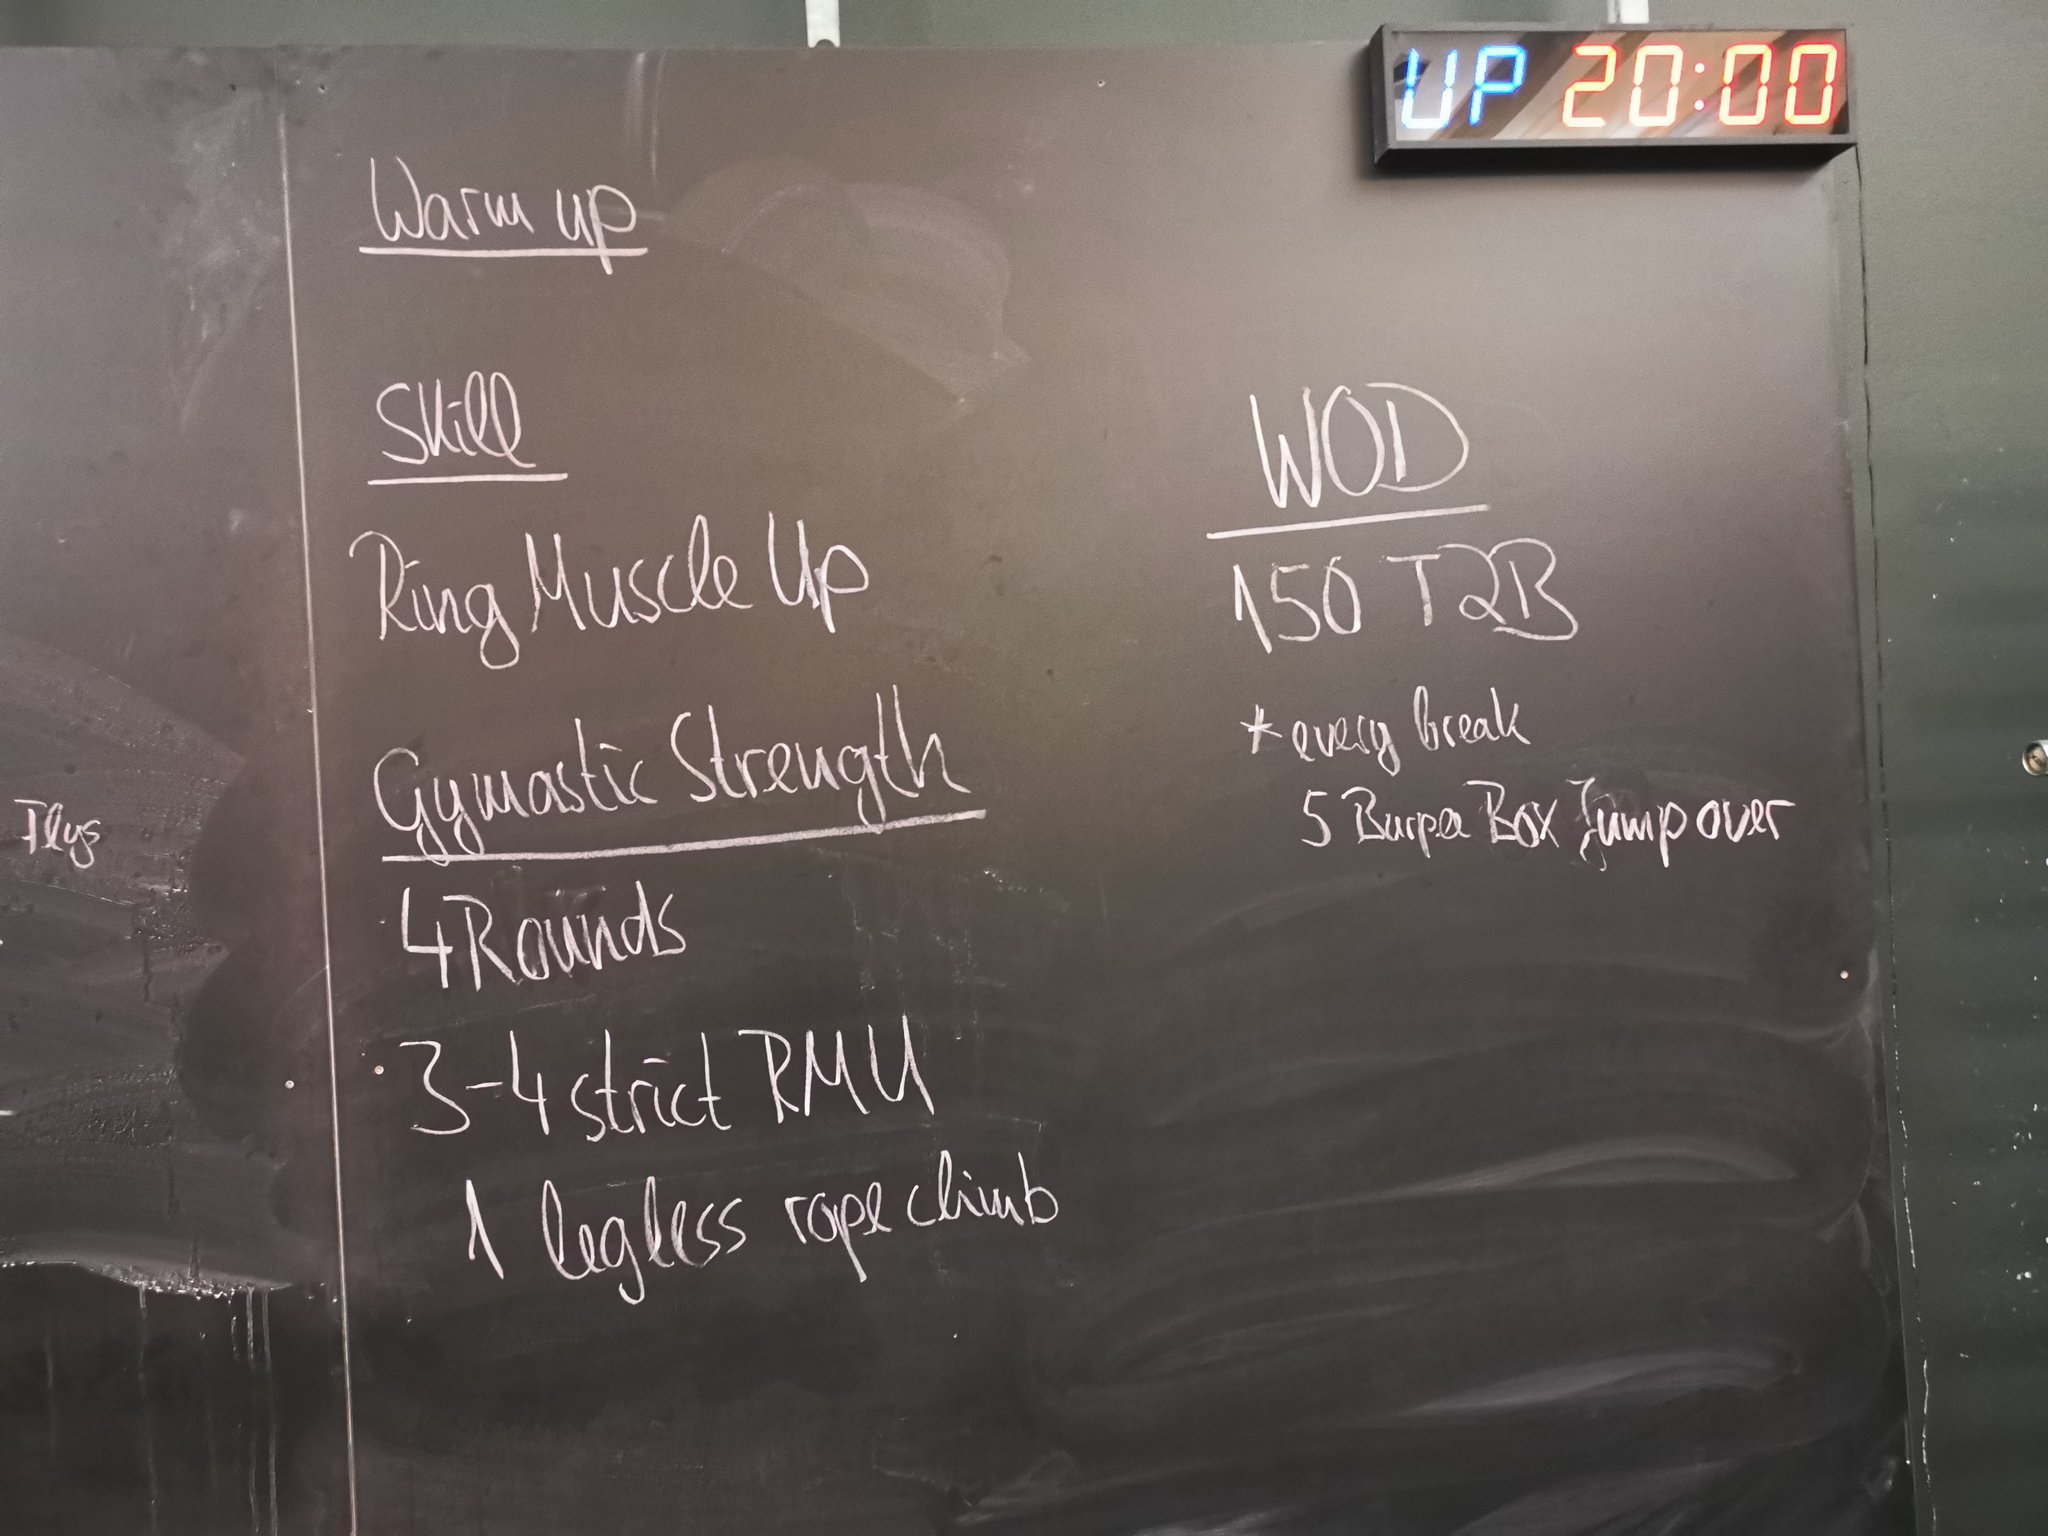 UP 20:00
Warm up
Skill
Ring Muscle Up
Gymastic Strength
4 Rounds
3-4 strict RMU
1 legless rope climb
WOD
150 T2B
* every break
5 Burpee Box Jump over